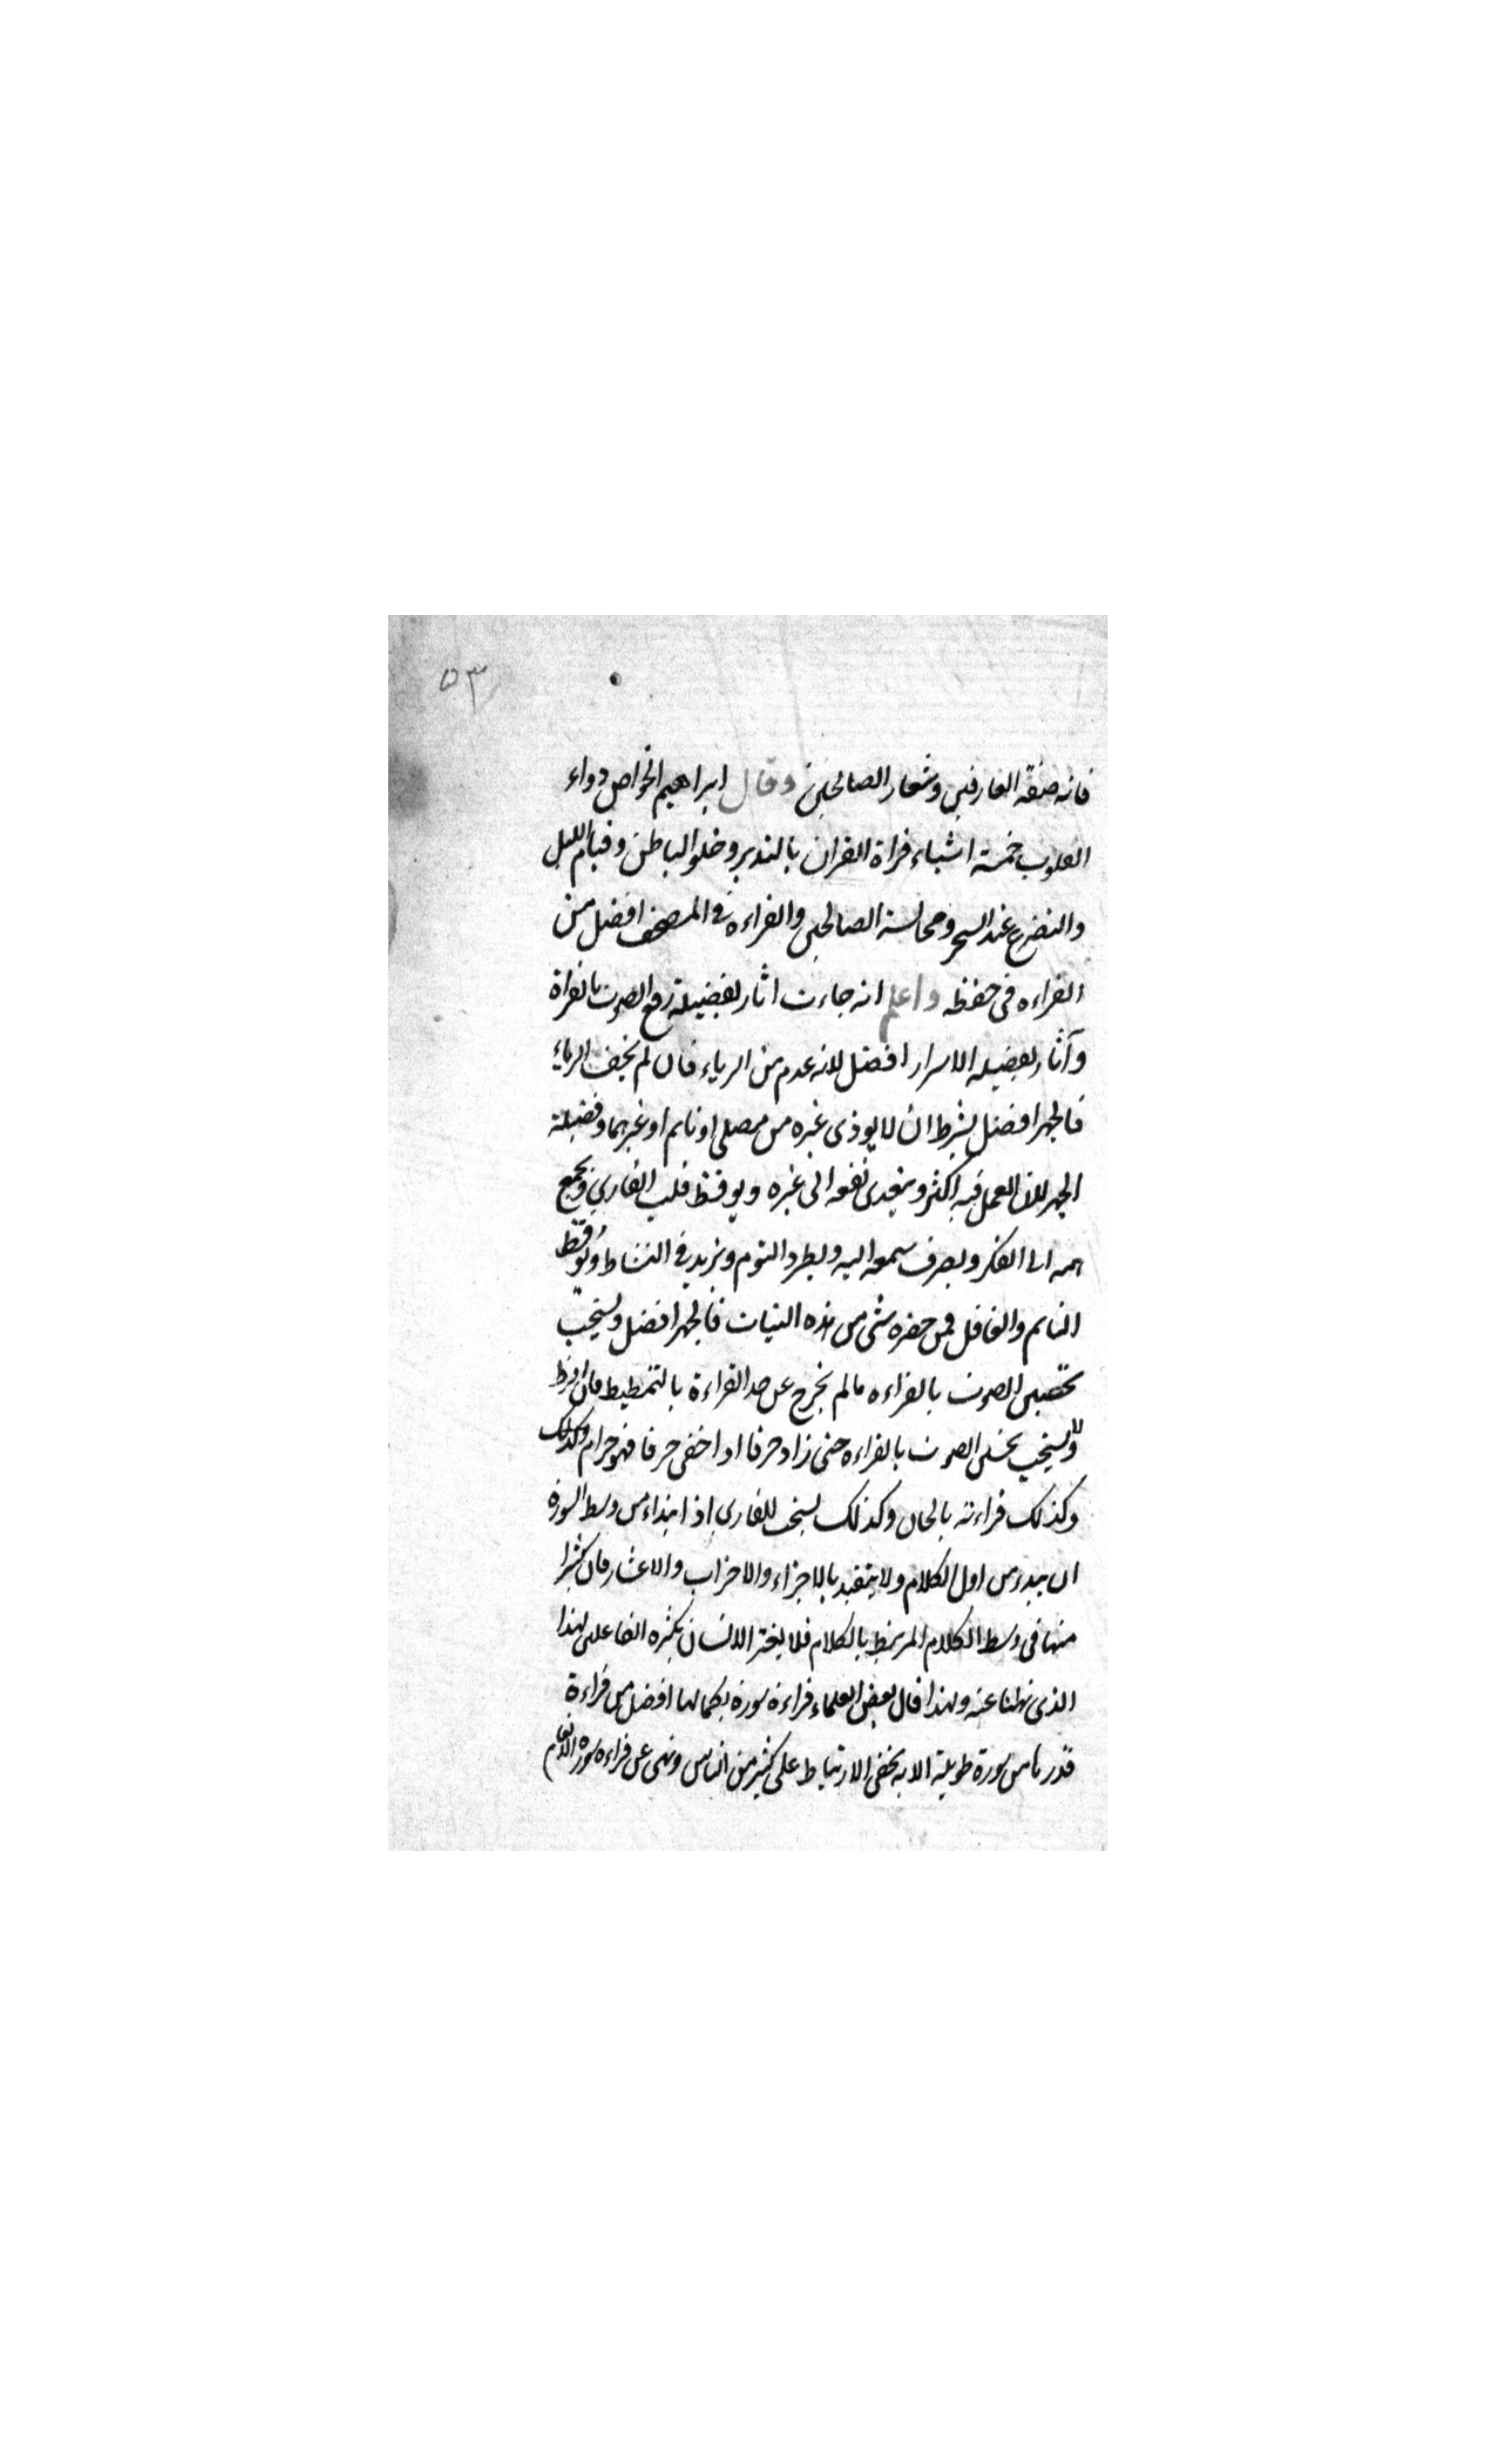 ٥٣
فانه صفة العارفين وشعار الصالحين وقال ابراهيم الخواص دواء
القلوب خمسة اشياء قراة القران بالتدبر وخلو الباطن وقيام الليل
والتضرع عند السحر ومجالسة الصالحين والقراءه في المصحف افضل من
القراءه في حفظه واعلم انه جاءت اثار بفضيلة رفع الصوت بالقراة
وآثار بفضيله الاسرار افضل لانه عدم من الرياء فان لم يخف الرياء
فالجهر افضل بشرط ان لا يوذى غيره من مصلى او نايم او غيرهما وفضيلة
الجهر لان العمل فيه اكثر ويتعدى نفعه الى غيره ويوقظ قلب القاري ويجمع
همه الى الفكر ويصرف سمعه اليه ويطرد النوم ويزيد في النشاط ويُوقظ
النايم والغافل فمن حضره شي من هذه النيات فالجهر افضل ويستحب
تحسين الصوت بالقراءه مالم يخرج عن حد القراءة بالتمطيط فان افرط
ولا يستحب تحسين الصوت بالقراءه حتى زاد حرفا او اخفى حرفا فهو حرام وكذلك
وكذلك قراءته بالحان وكذلك يستحب للقاري اذا ابتداء من وسط السورة
ان يبدء من اول الكلام ولا يتقيد بالاجزاء والاحزاب والاعشار فان كثيرا
منها في وسط الكلام المرتبط بالكلام فلا يغتر الانسان بكثره الفاعلين لهذا
الذى نهينا عنه ولهذا قال بعض العلماء قراءة سورة بكمالها افضل من قراءة
قدرها من سورة طويلة لانه يخفى الارتباط على كثير من الناس ونهى عن قراءه سورة الانعام